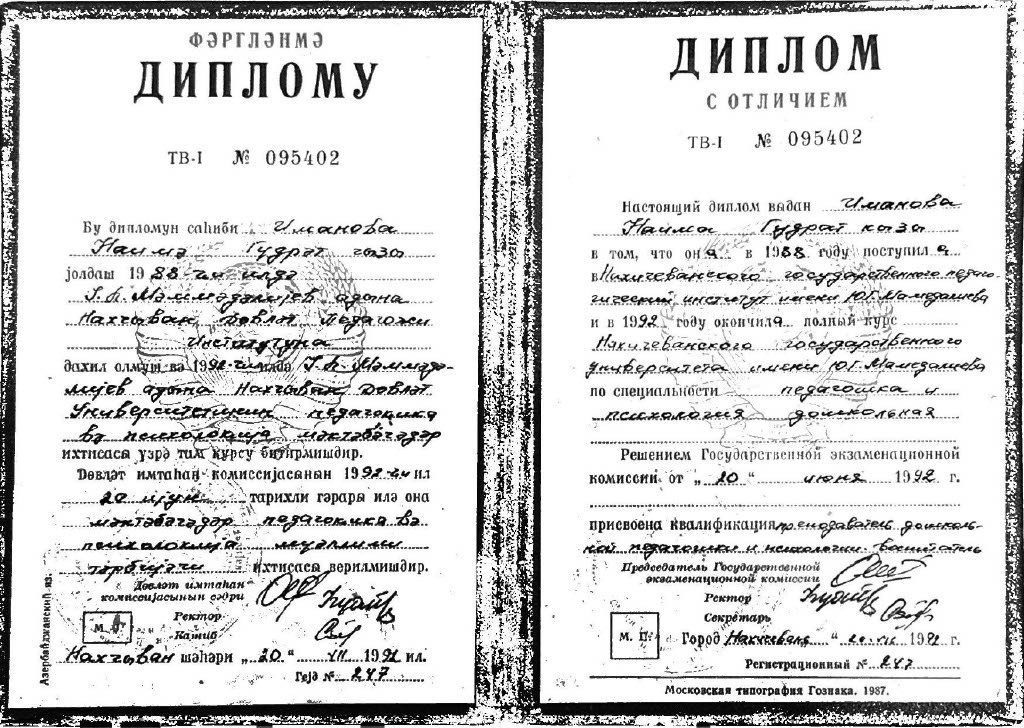 ФӘРГЛӘНМӘ
ДИПЛОМУ
ТВ-I № 095402
Бу дипломун саһиби Иманова
Наимә Гудрәт гызы
јолдаш 1988-чи илдә
Ј. һ. Мәммәдәлијев адына
Нахчыван Дөвләт Педагожи
Институтуна
дахил олмуш вә 1992-чи илдә Ј. һ. Мәммәдә-
лијев адына Нахчыван Дөвләт
Университетинин педагоҝика
вә психолоҝија мәктәбәгәдәр
ихтисаса үзрә там курсу битирмишдир.
Дөвләт имтаһан комиссијасынын 1992-чи ил
20 ијун тарихли гәрары илә она
мәктәбәгәдәр педагоҝика вә
психолоҝија муәллими
тәрбијәчи ихтисасы верилмишдир.
Дөвләт имтаһан
комиссијасынын сәдри
Ректор
Катиб
М. Ј.
Нахчыван шәһәри „20“ VII 1992 ил.
Гејд № 247
Азербайджанский из.
ДИПЛОМ
С ОТЛИЧИЕМ
ТВ-I № 095402
Настоящий диплом выдан Иманова
Наима Гудрат кызы
в том, что она в 1988 году поступила
в Нахичеванского государственного педаго-
гический институт имени Ю.Г. Мамедалиева
и в 1992 году окончила полный курс
Нахичеванского государственного
университета имени Ю.Г. Мамедалиева
по специальности педагогика и
психология дошкольная
Решением Государственной экзаменационной
комиссии от „20“ июня 1992 г.
присвоена квалификация преподаватель дошколь-
ной педагогики и психологии. воспитатель
Председатель Государственной
экзаменационной комиссии
Ректор
Секретарь
М. П.
Город Нахичевань „20“ VII 1992 г.
Регистрационный № 247
Московская типография Гознака. 1987.